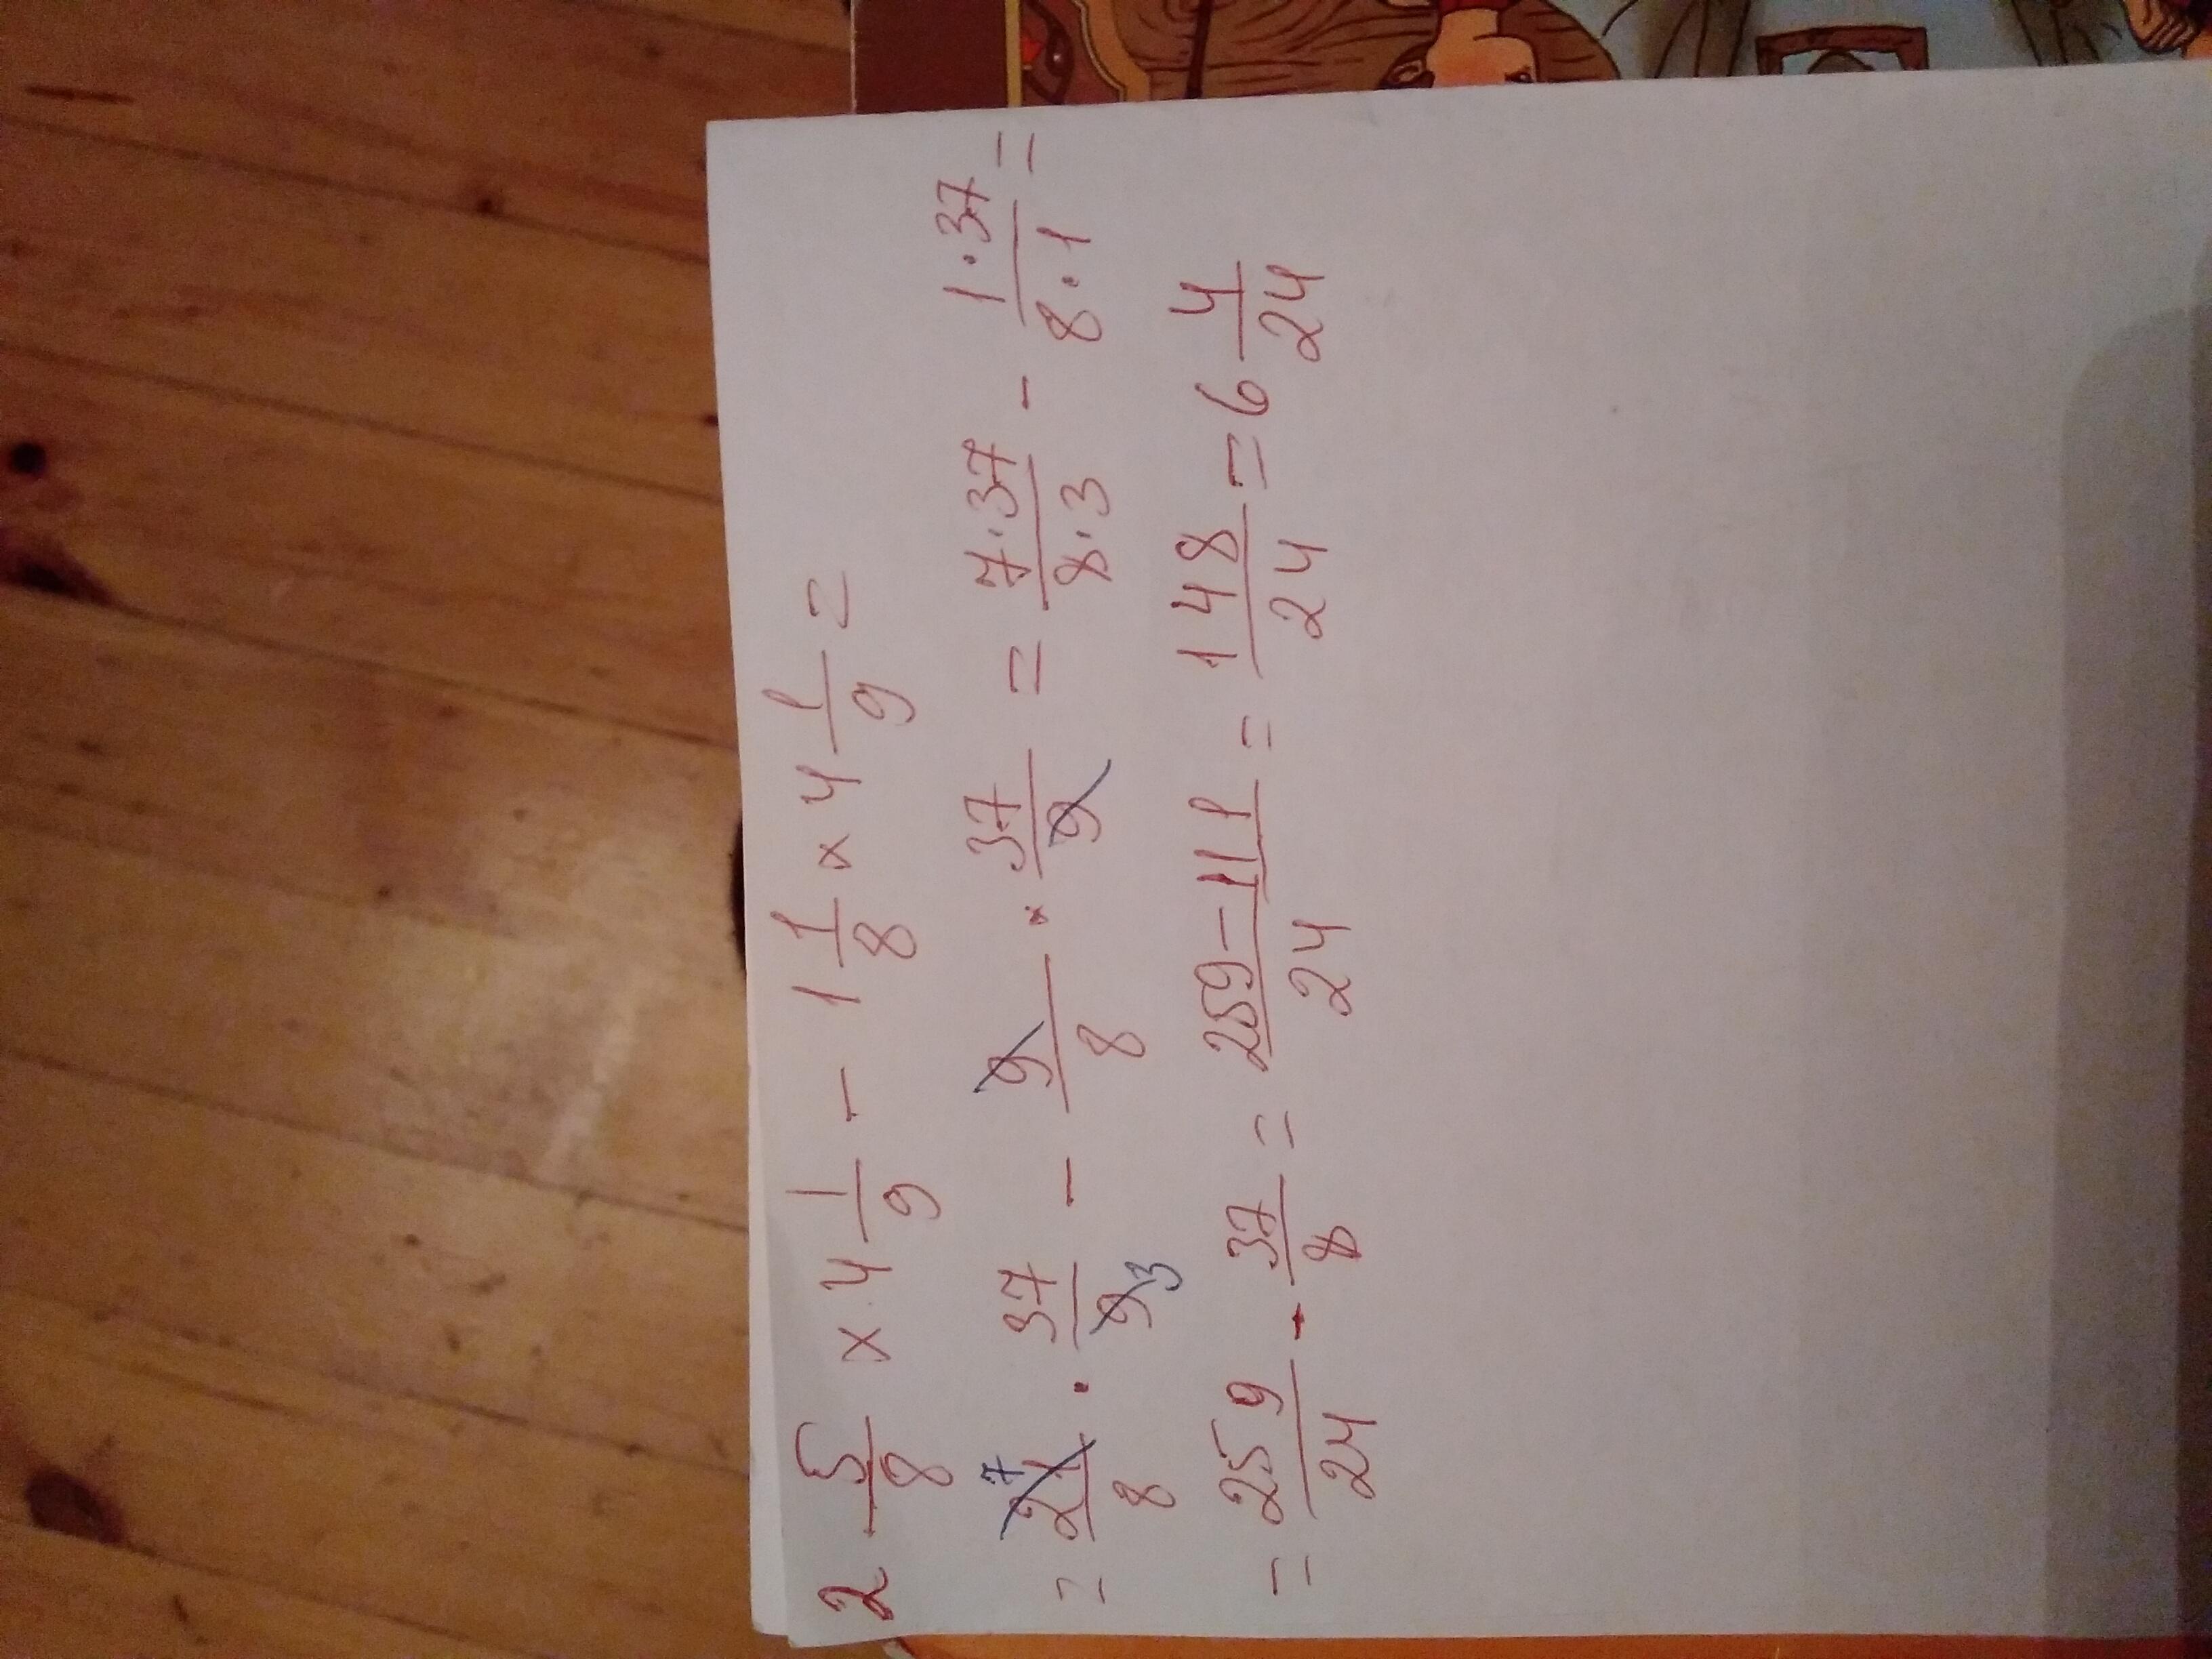 2 5/8 x 4 1/9 - 1 1/8 x 4 1/9 =
= 21/8 7 · 37/9 3 - 9/8 · 37/9 = 7·37/8·3 - 1·37/8·1 =
= 259/24 - 37/8 = 259-111/24 = 148/24 = 6 4/24